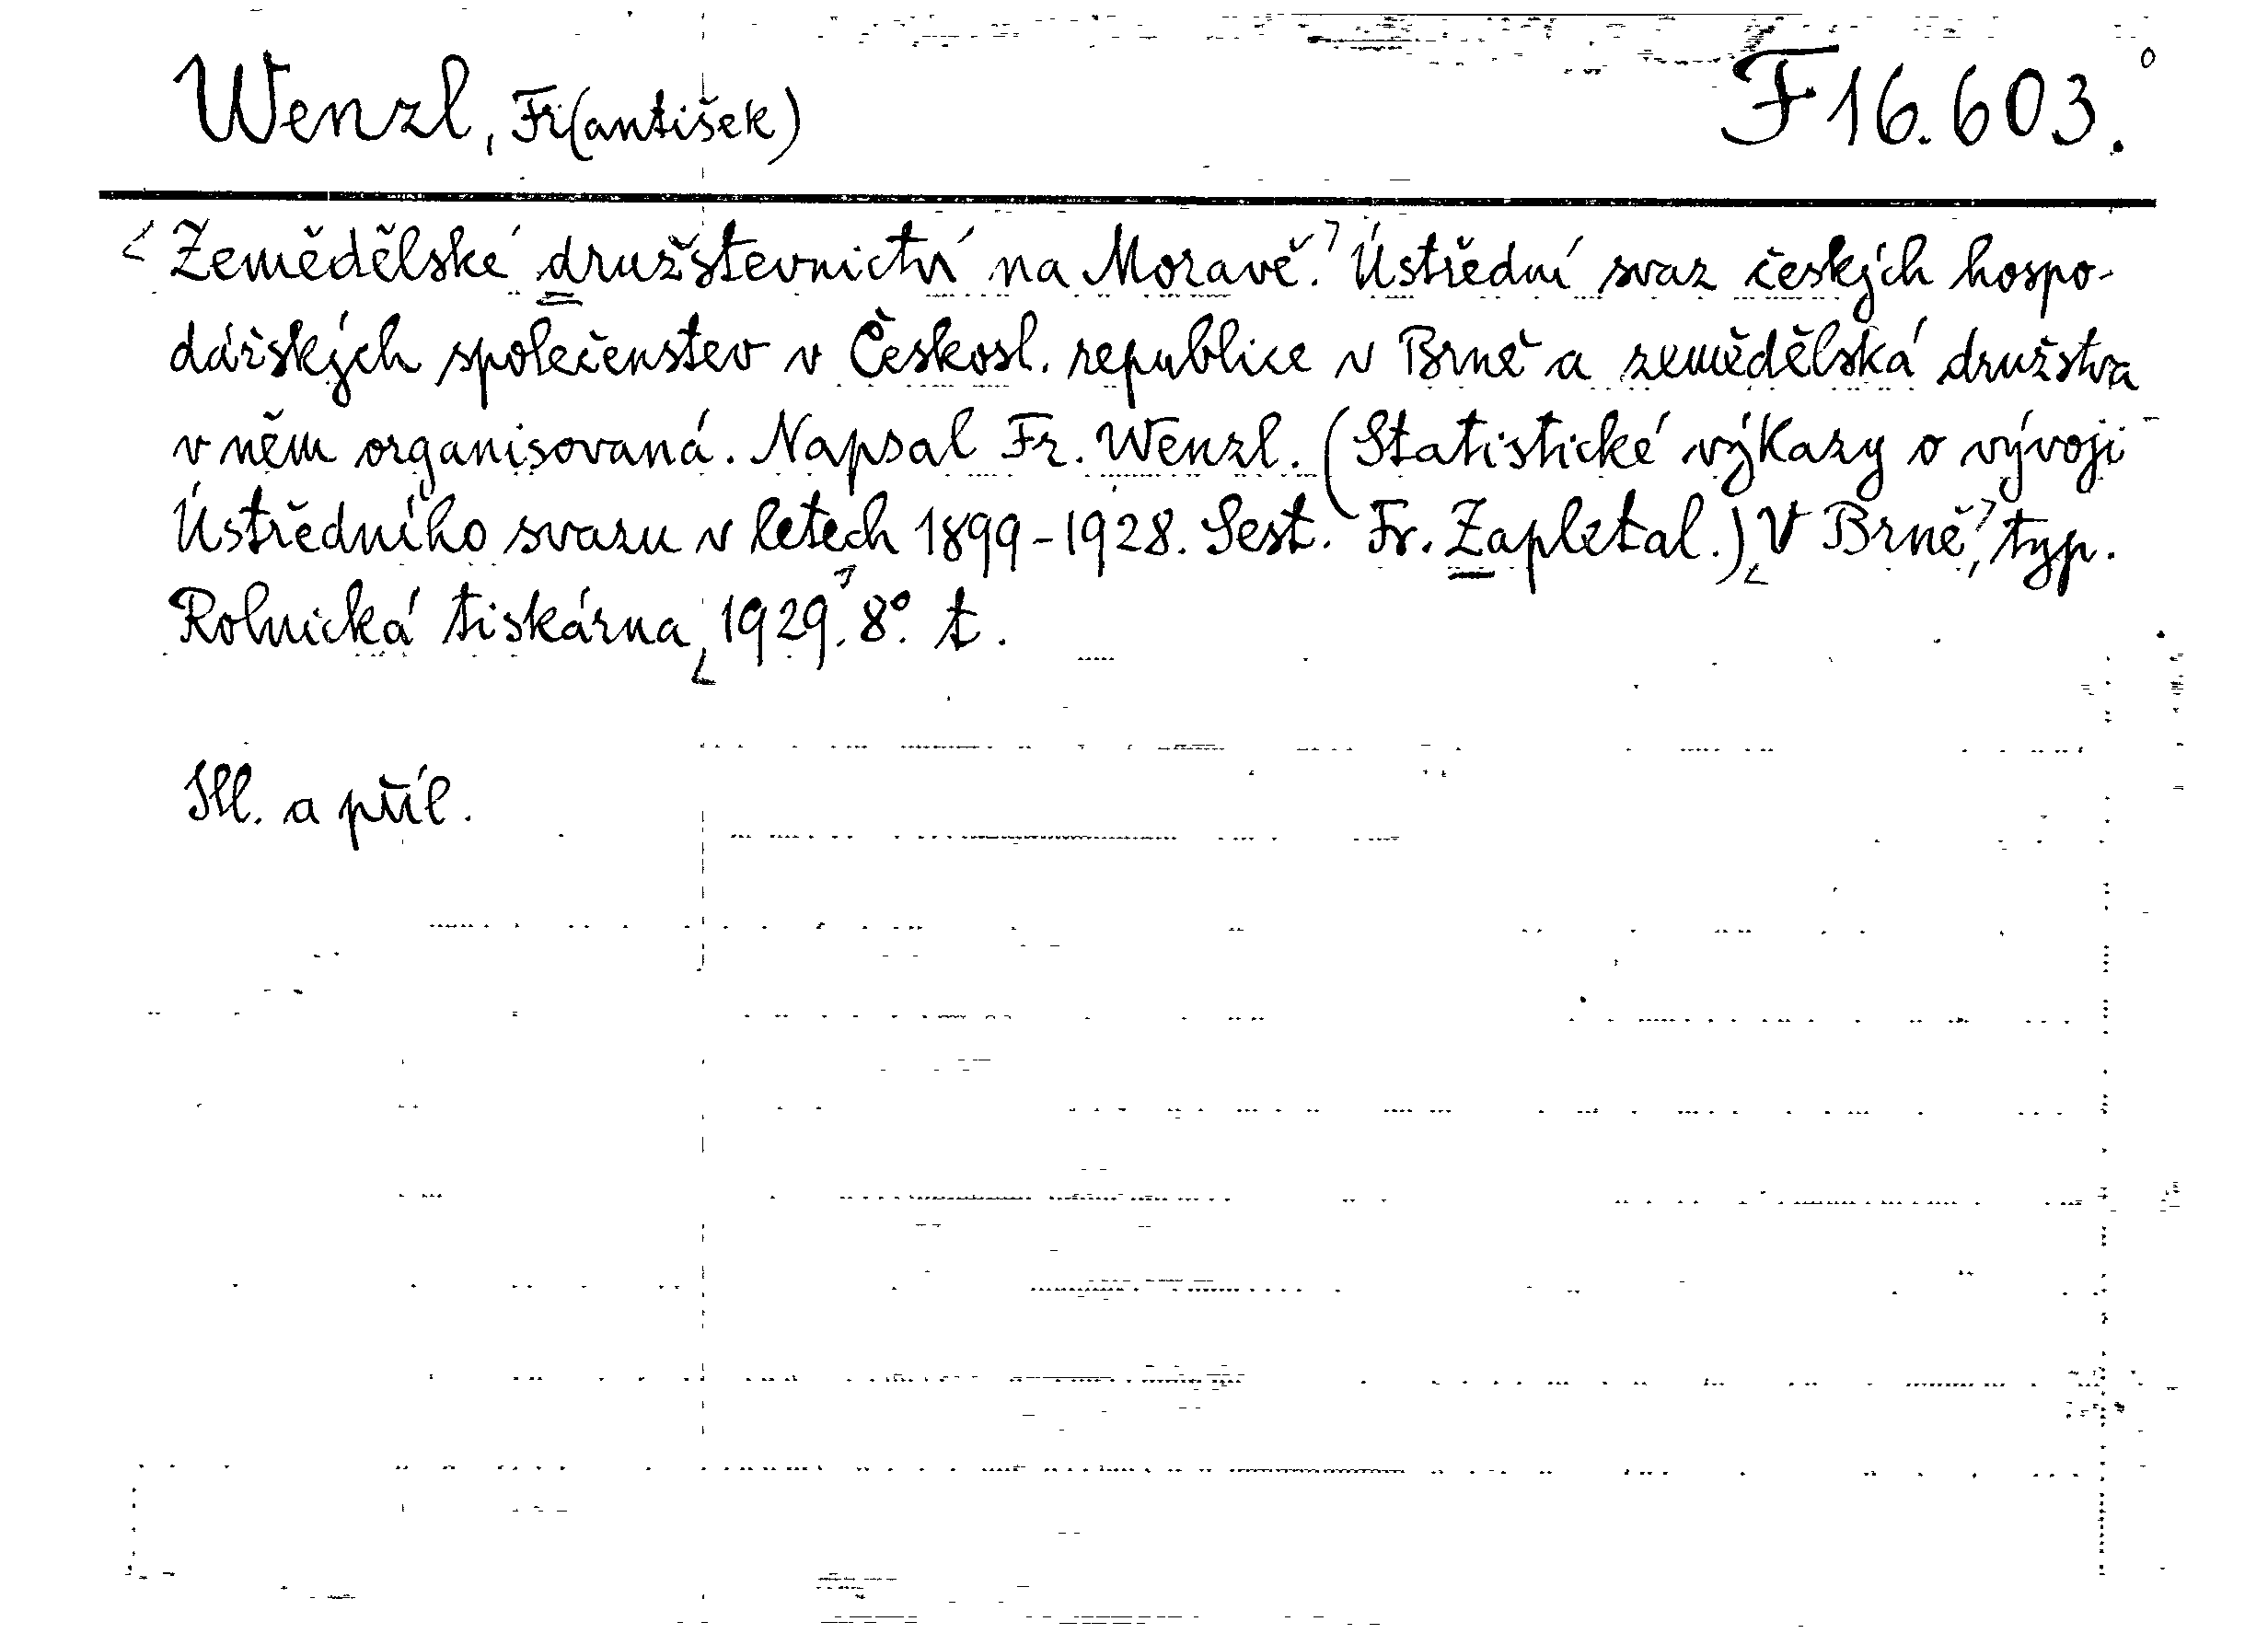 Wenzl, Fr(antišek) F 16.603.
Zemědělské družstevnictví na Moravě. Ústřední svaz českých hospo-
dářských společenstev v Českosl. republice v Brně a zemědělská družstva
v něm organisovaná. Napsal Fr. Wenzl. (Statistické výkazy o vývoji
Ústředního svazu v letech 1899-1928. Sest. Fr. Zapletal.) V Brně, typ.
Rolnická tiskárna, 1929. 8°. t.
Ill. a příl.